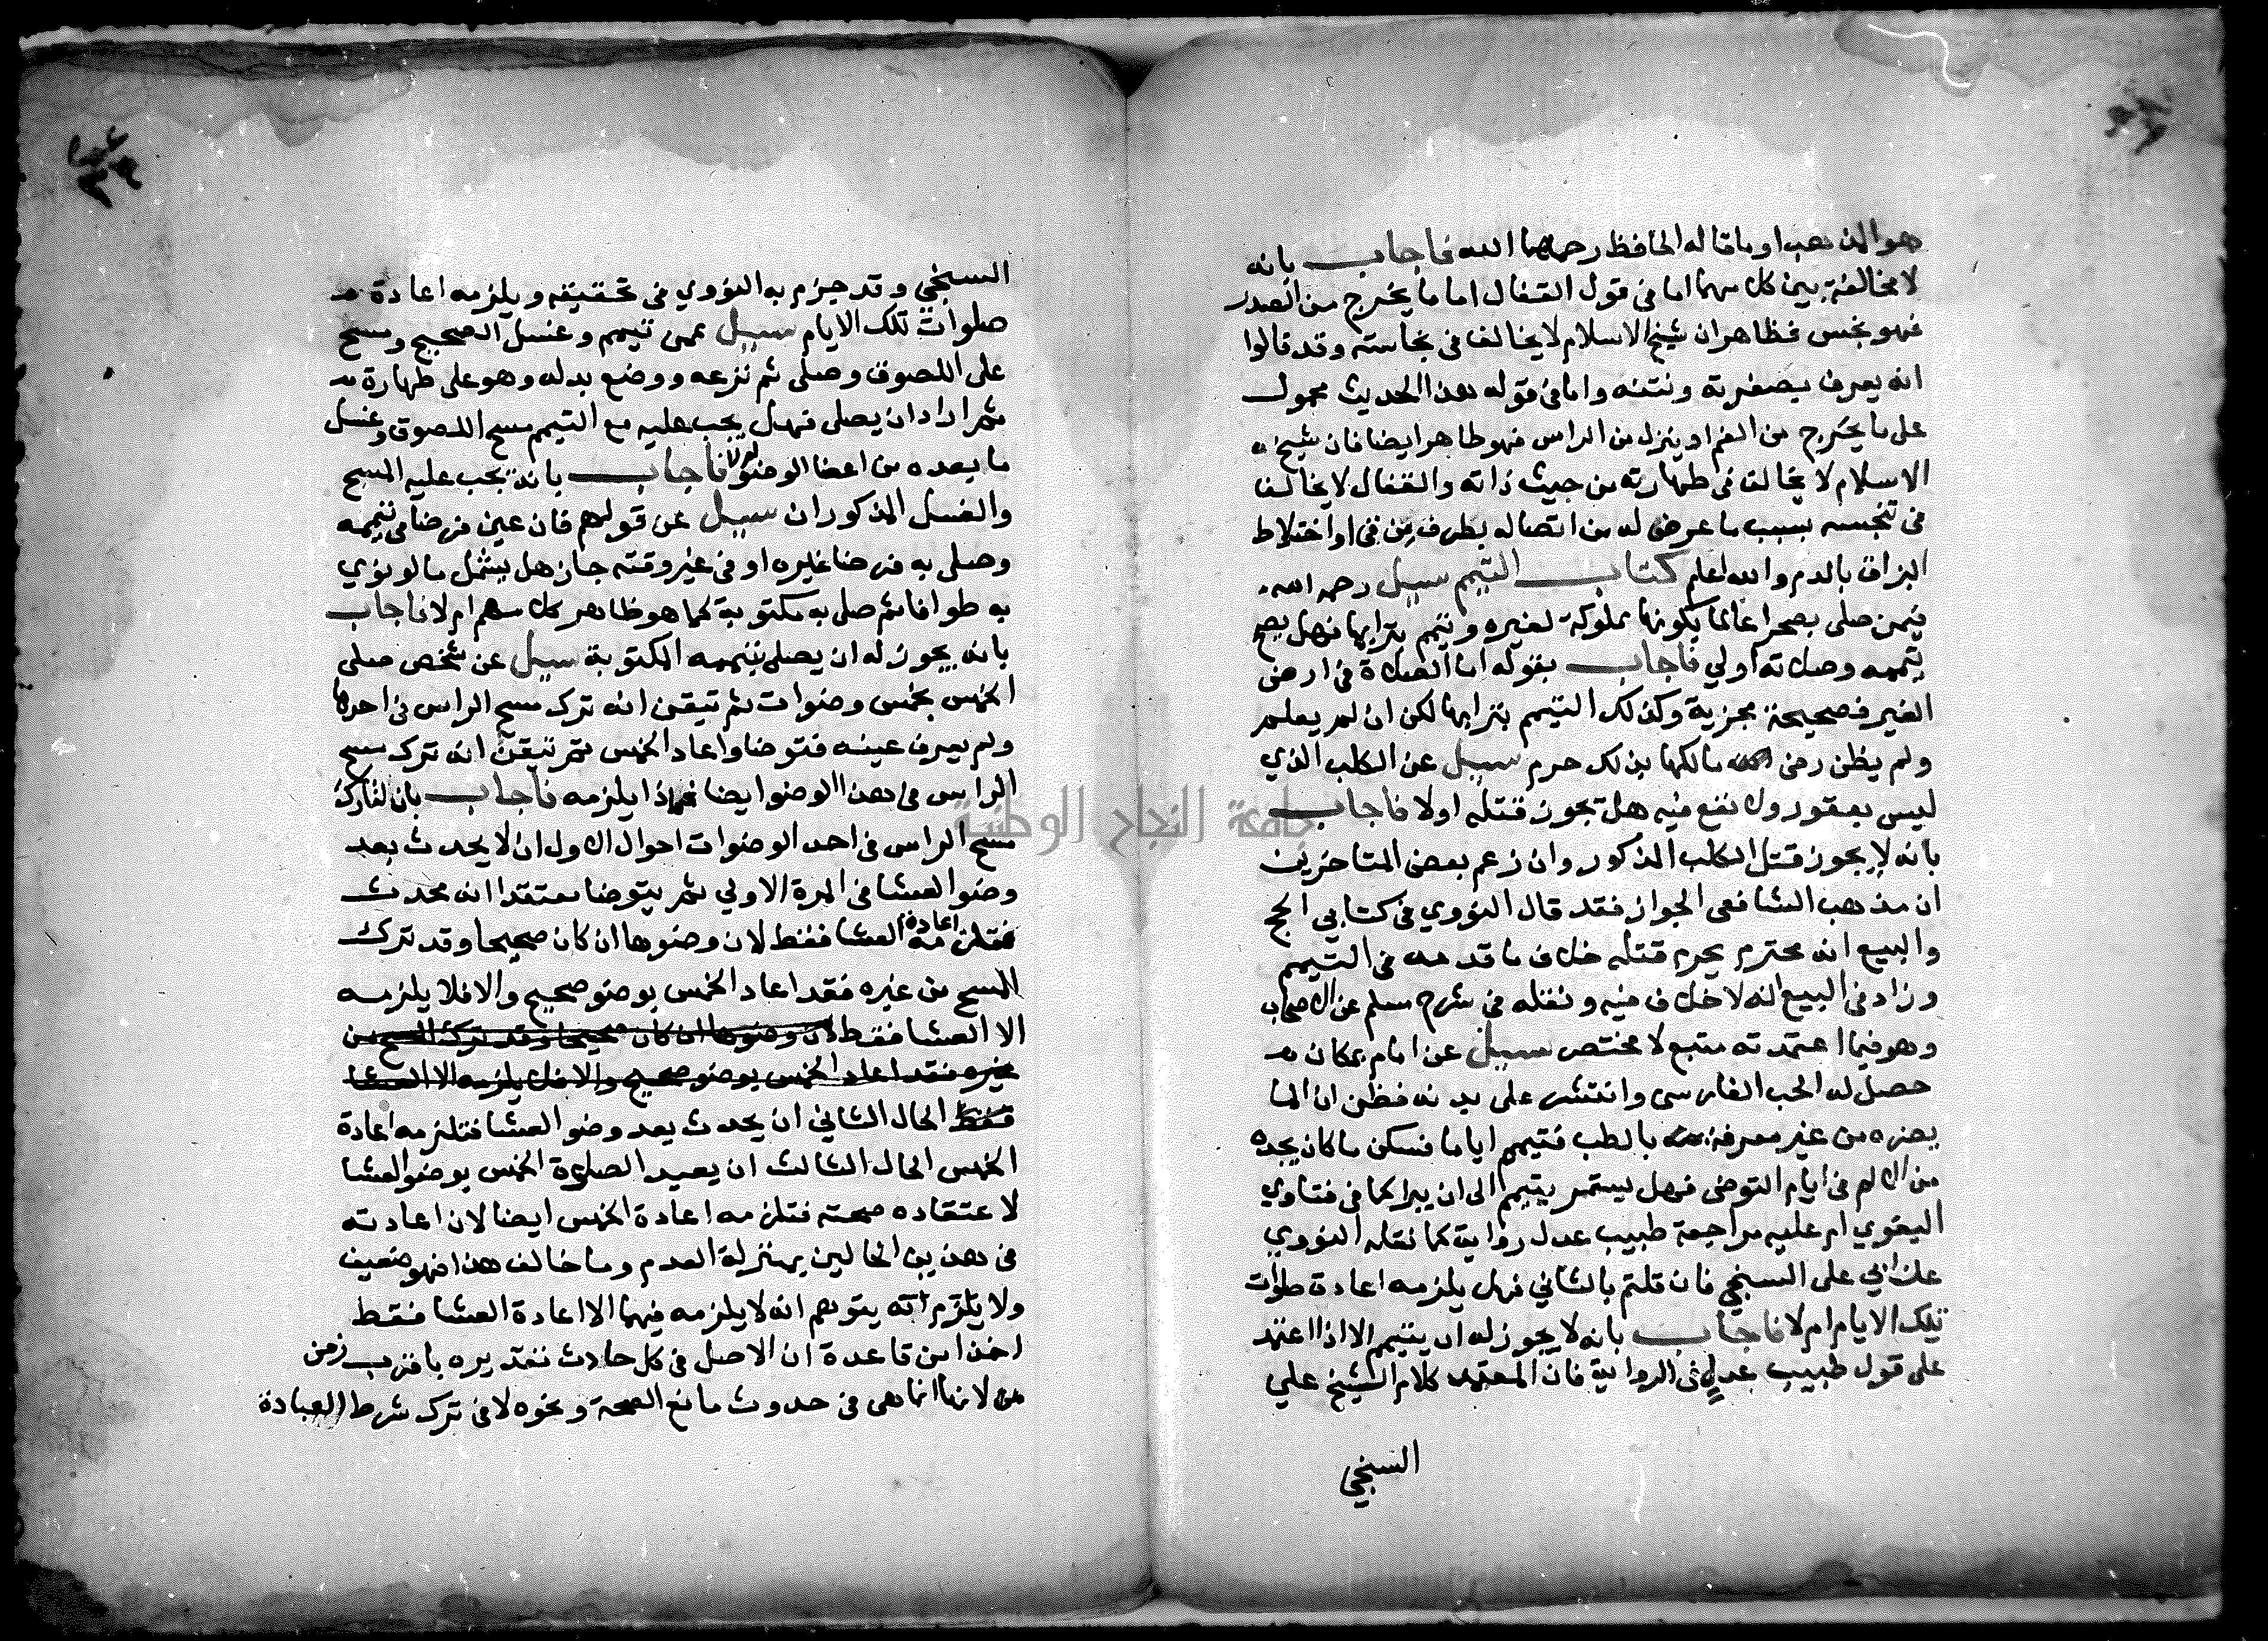 هو المذهب او ما قاله الحافظ رحمهما الله فاجاب بانه
لا مخالفة بين كل منهما اما في قول القفال اما ما يخرج من الصدر
فهو نجس فظاهر ان شيخ الاسلام لا يخالف في نجاسته وقد قالوا
انه يعرف بصفرته ونتنه واما في قوله هذا الحديث محمول
على ما يخرج من الفم او ينزل من الراس فهو طاهر ايضا فان شيخ
الاسلام لا يخالف في طهارته من حيث ذاته والقفال لا يخالف
في تنجسه بسبب ما عرض له من اتصاله بطرف من قي او اختلاط
البزاق بالدم والله اعلم كتاب التيمم سيل رحمه الله
فيمن صلى بصحرا عالما بكونها مملوكة لغيره وتيمم بترابها فهل يصح
تيممه وصلاته اولي فاجاب بقوله اما الصلاة في ارض
الغير فصحيحة مجزية وكذلك التيمم بترابها لكن ان لم يعلم
ولم يظن رضى مالكها بذلك حرم سيل عن الكلب الذي
ليس بعقور ولا نفع فيه هل يجوز قتله اولا فاجاب
بانه لا يجوز قتل الكلب المذكور وان زعم بعض المتاخرين
ان مذهب الشافعي الجواز فقد قال النووي في كتابي الحج
والبيع انه محترم يحرم قتله خلاف ما قدمه في التيمم
وزاد في البيع انه لا خلاف فيه ونقله في شرح مسلم عن الاصحاب
وهو فيما اعتمدته متبع لا مختص سيل عن امام بمكان
حصل له الحب الفارسي وانتشر على بدنه فظن ان الما
يضره من غير معرفة بالطب فتيمم اياما فسكن ما كان يجده
من الالم في ايام التوضي فهل يستمر يتيمم الى ان يبرا كما في فتاوي
البغوي ام عليه مراجعة طبيب عدل رواية كما نقله النووي
عن ابي على السنجي فان قلتم بالثاني فهل يلزمه اعادة صلوات
تلك الايام ام لا فاجاب بانه لا يجوز له ان يتيمم الا اذا اعتمد
على قول طبيب عدل في الرواية فان المعتمد كلام الشيخ علي
السنجي
السنجي وقد جزم به النووي في تحقيقه ويلزمه اعادة
صلوات تلك الايام سيل عمن تيمم وغسل الصحيح ومسح
على اللصوق وصلى ثم نزعه ووضع بدله وهو على طهارة
ثم اراد ان يصلى فهل يجب عليه مع التيمم مسح اللصوق وغسل
ما بعده من اعضا الوضو اولا فاجاب بانه يجب عليه المسح
والغسل المذكوران سيل عن قولهم فان عين فرضا في تيممه
وصلى به فرضا غيره او في غير وقته جاز هل يشمل ما لو نوي
به طوافا ثم صلى به مكتوبة كما هو ظاهر كلامهم ام لا فاجاب
بانه يجوز له ان يصلى بتيممه المكتوبة سيل عن شخص صلى
الخمس بخمس وضوات ثم تيقن انه ترك مسح الراس في احدها
ولم يعرف عينه فتوضا واعاد الخمس ثم تيقن انه ترك مسح
الراس في هذا الوضو ايضا فماذا يلزمه فاجاب بان لتارك
مسح الراس في احد الوضوات احوال الاول ان لا يحدث بعد
وضو العشا في المرة الاولي ثم يتوضا معتقدا انه محدث
فتلزمه اعادة العشا فقط لان وضوها ان كان صحيحا وقد ترك
المسح من غيره فقد اعاد الخمس بوضو صحيح والا فلا يلزمه
الا العشا فقط لان وضوها ان كان صحيحا وقد ترك المسح من
غيره فقد اعاد الخمس بوضو صحيح والا فلا يلزمه الا العشا
فقط الحال الثاني ان يحدث بعد وضو العشا فتلزمه اعادة
الخمس الحال الثالث ان يعيد الصلوة الخمس بوضو العشا
لاعتقاده صحته فتلزمه اعادة الخمس ايضا لان اعادته
في هذين الحالين بمنزلة العدم وما خالف هذا فهو ضعيف
ولا يلزم انه يتوهم انه لا يلزمه فيهما الا اعادة العشا فقط
اخذا من قاعدة ان الاصل في كل حادث تقديره باقرب زمن
لانها انما هي في حدوث مانع الصحة ونحوه لا في ترك شرط العبادة
جامعة النجاح الوطنية